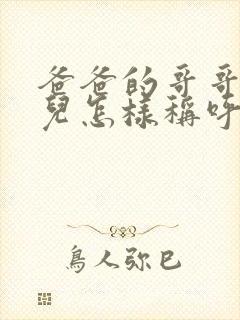 爸爸的哥哥
兒怎樣稱呼
鳥人弥巳